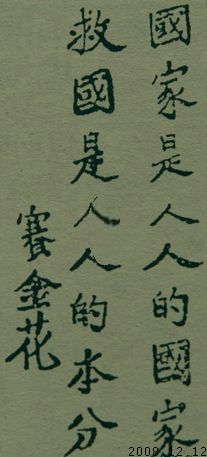 國家是人人的國家
救國是人人的本分
賽金花
2009_12_12